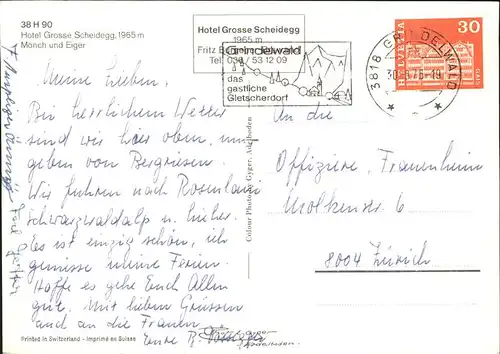 38 H 90
Hotel Grosse Scheidegg, 1965 m
Mönch und Eiger
Hotel Grosse Scheidegg
1965 m
Fritz
Tel. 036 / 53 12 09
Grindelwald
das
gastliche
Gletscherdorf
3818 GRINDELWALD
HELVETIA
30
Meine Lieben.
Bei herrlichem Wetter
sind wir hier oben, um
geben von Bergriesen.
Wir fuhren nach Rosenlaui
Schwarzwaldalp u. hieher.
Es ist einzig schön, ich
geniesse meine Ferien.
Hoffe es gehe Euch Allen
gut. Mit lieben Grüssen
und an die Frauen
Eure R.
An die
Offiziere, Frauenheim
Molkenstr. 6
8004 Zürich
Colour Photo by E. Gyger, Adelboden
Printed in Switzerland - Imprimé en Suisse